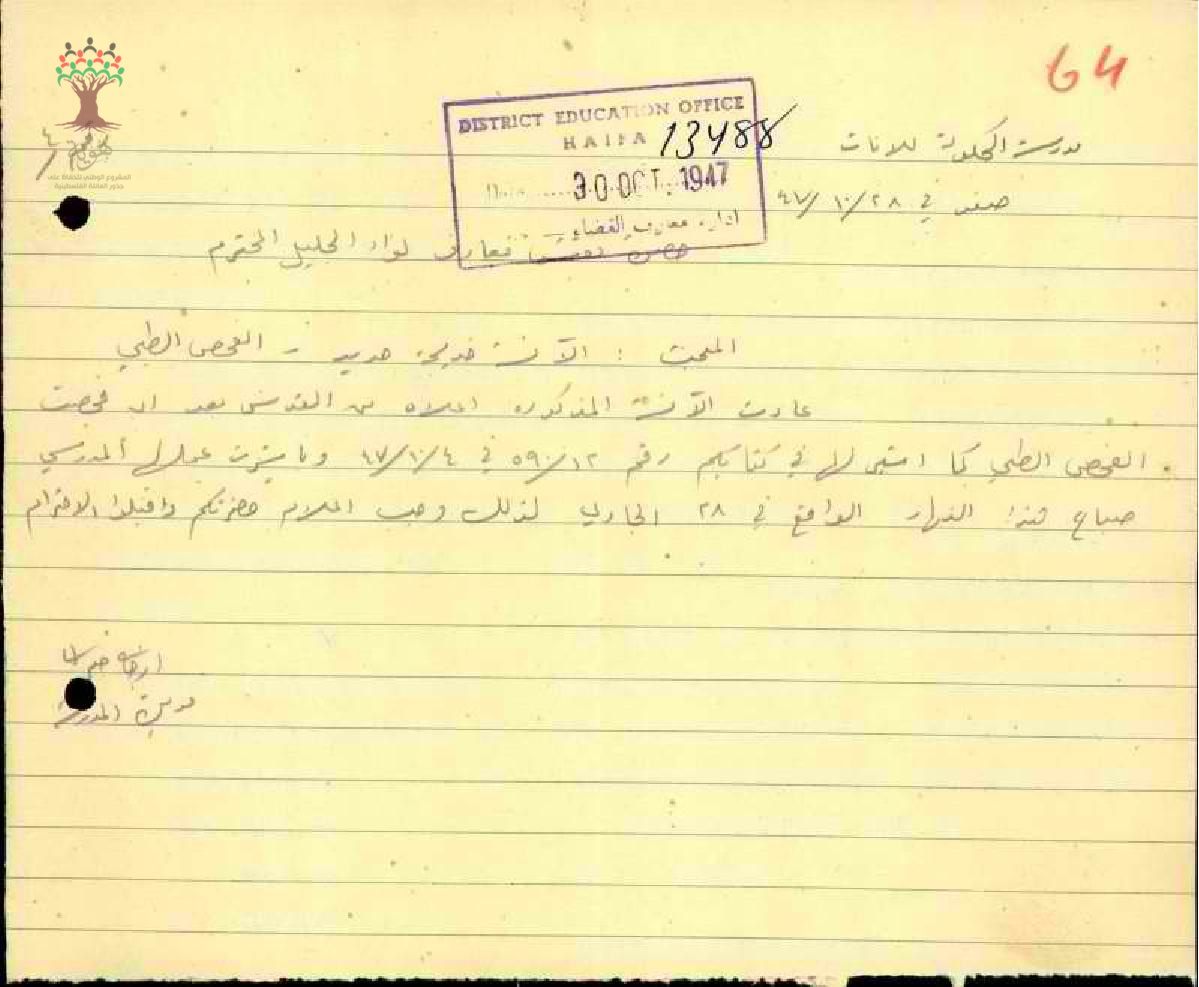 64
DISTRICT EDUCATION OFFICE
HAIFA 13488
Date 30 OCT. 1947
ادارة معارف القضاء
مدرسة الحكومة للبنات
صفد في ٢٨/١٠/٤٧
حضرة مفتش معارف لواء الجليل المحترم
المبحث : الآنسة خديجة حديد - الفحص الطبي
عادت الآنسة المذكوره اعلاه من القدس بعد ان فحصت
الفحص الطبي كما اشير لها في كتابكم رقم ٥٩٠/١٢ في ٤/١٠/٤٧ وباشرت عملها المدرسي
صباح هذا النهار الواقع في ٢٨ الجاري لذلك وجب اعلام حضرتكم واقبلوا الاحترام
مديرة المدرسة
المشروع الوطني للحفاظ على
جذور العائلة الفلسطينية